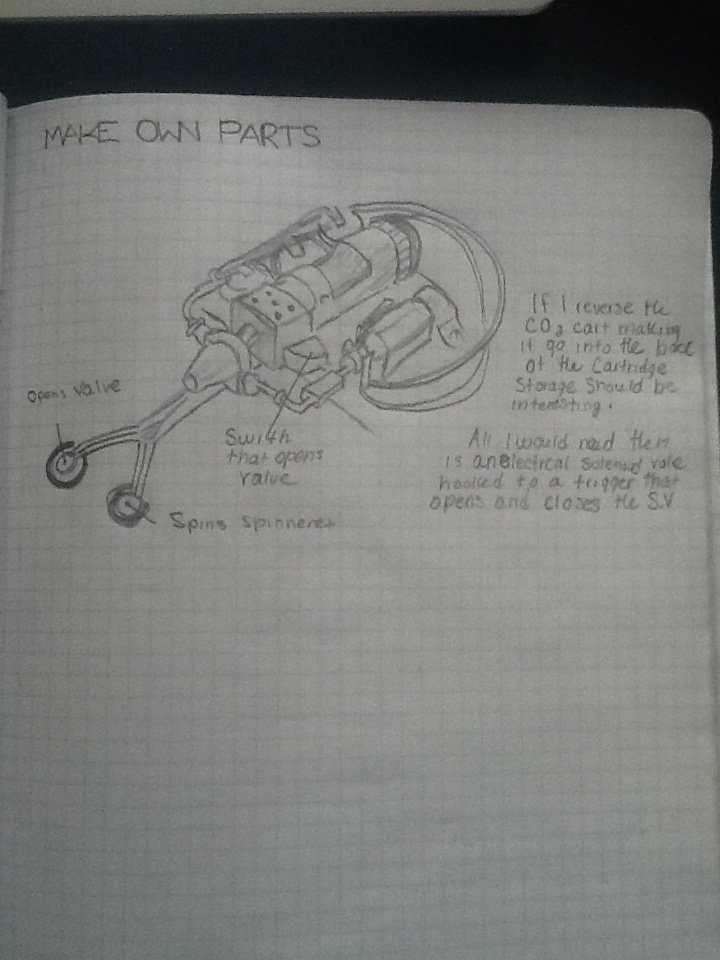 MAKE OWN PARTS
If I reverse the
CO2 cart making
it go into the back
of the Cartridge
Storage Should be
interesting.
opens valve
Swithh
that opens
valve
All I would need then
is an electrical Solenoid vale
hooked to a trigger that
opens and closes the S.V
Spins spinneret